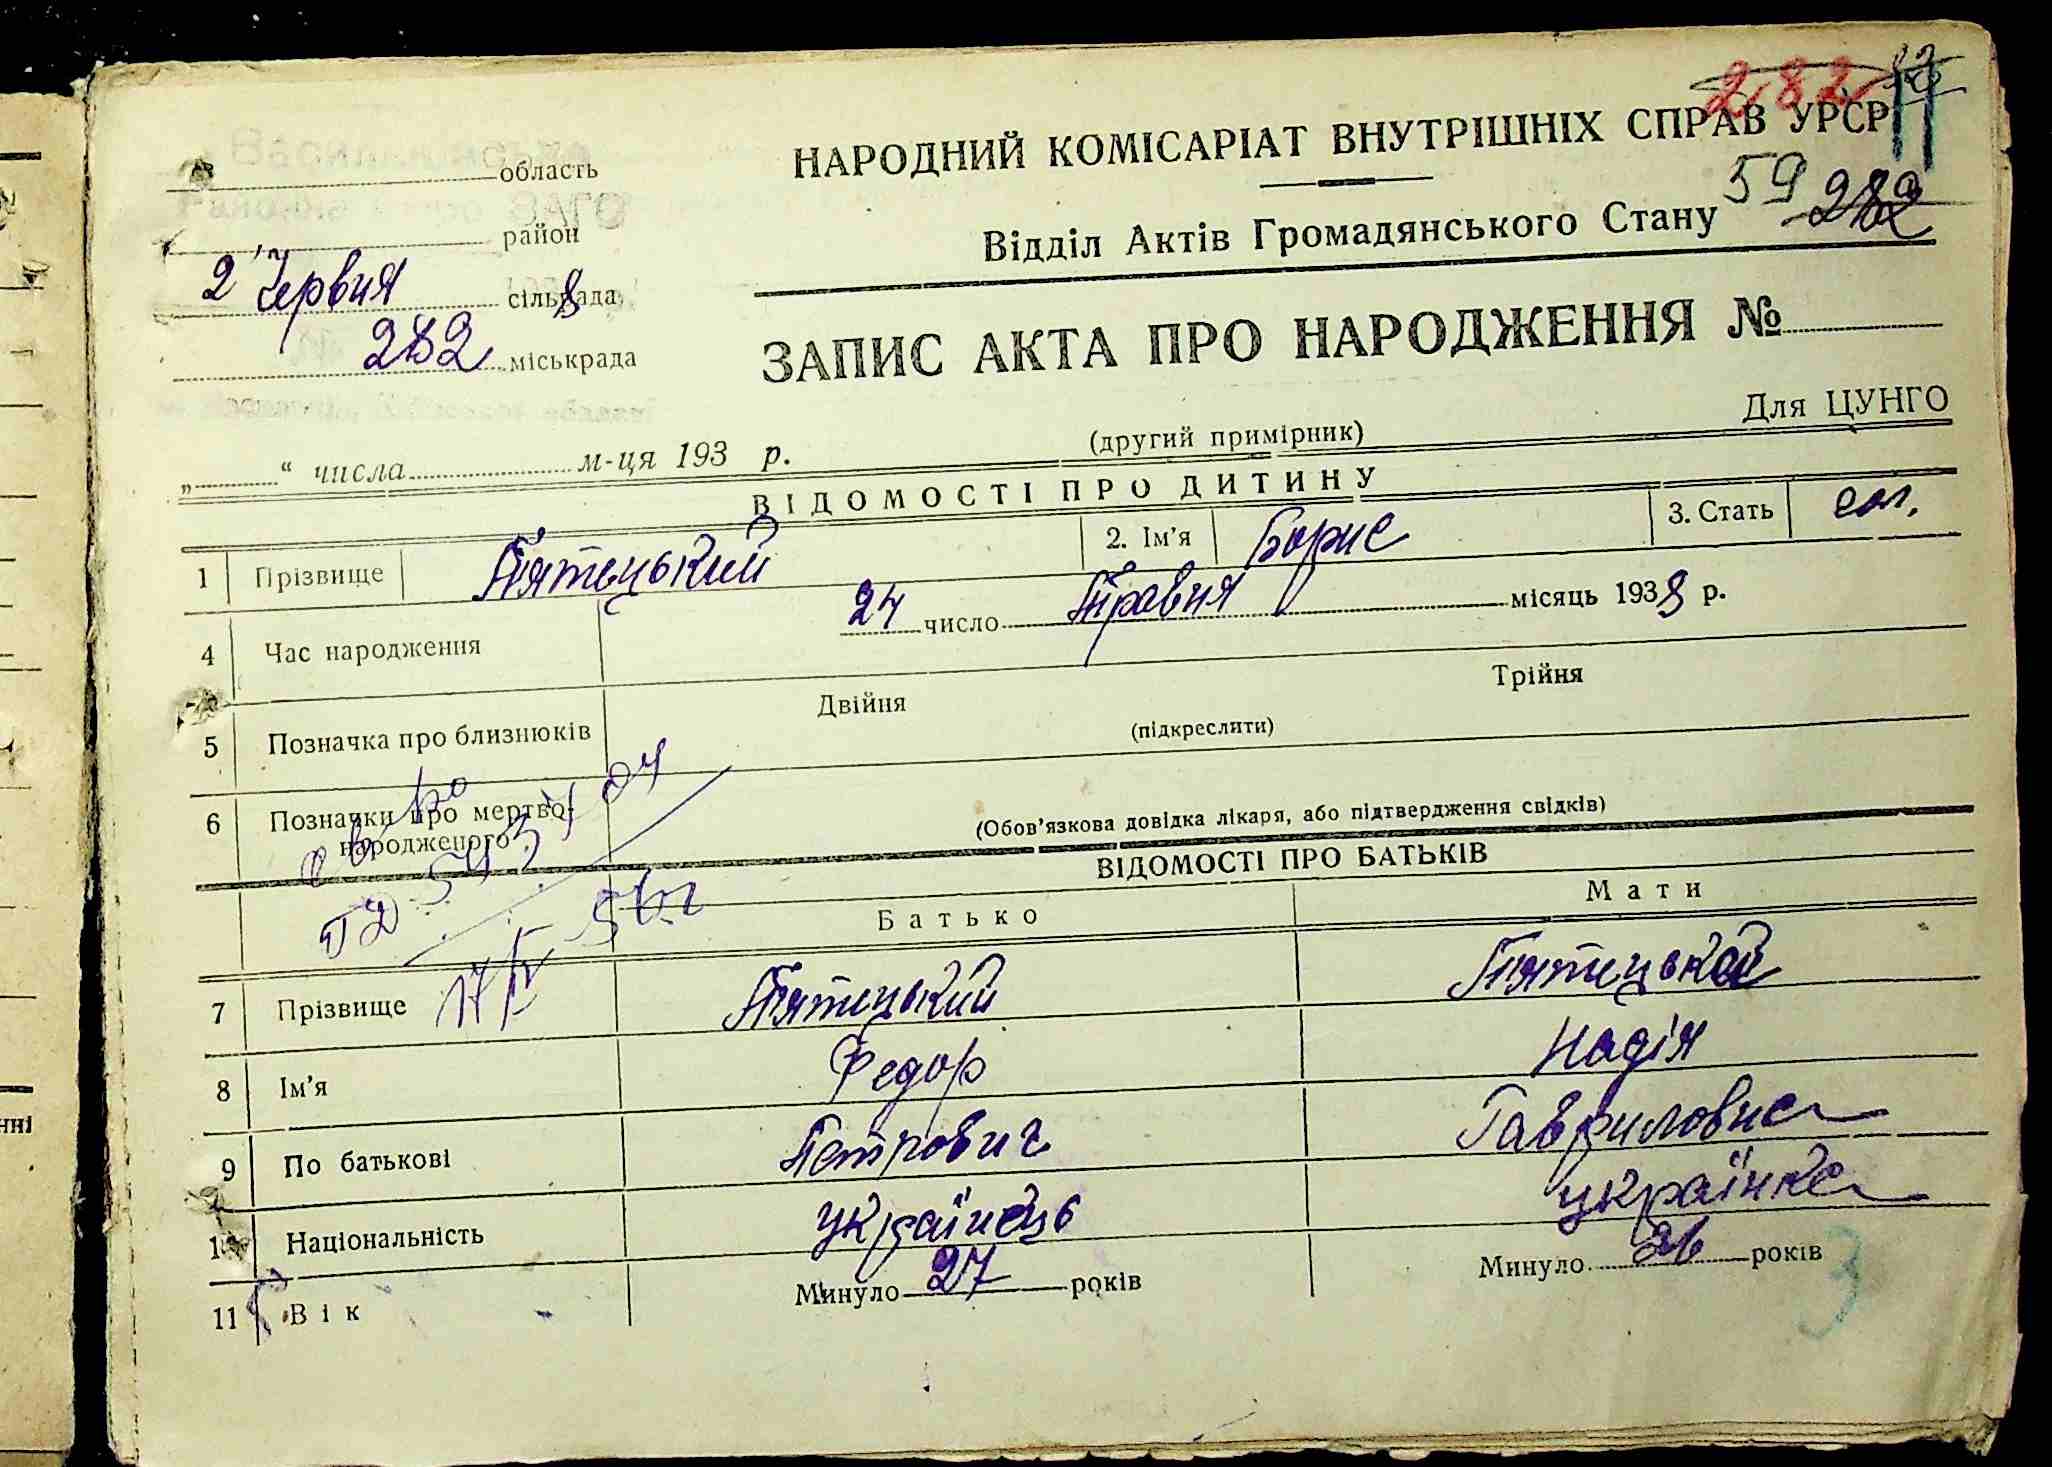 282
11
НАРОДНИЙ КОМІСАРІАТ ВНУТРІШНІХ СПРАВ УРСР
область
район
59 282
Відділ Актів Громадянського Стану
2 Червня 8 сільрада
282 міськрада
ЗАПИС АКТА ПРО НАРОДЖЕННЯ №
Для ЦУНГО
„ “ числа м-ця 193 р.
(другий примірник)
ВІДОМОСТІ ПРО ДИТИНУ
1 Прізвище П'ятецький 2. Ім'я Борис 3. Стать чол.
4 Час народження 24 число Травня місяць 1938 р.
5 Позначка про близнюків Двійня Трійня
(підкреслити)
6 Позначки про мертво-
народженого
(Обов'язкова довідка лікаря, або підтвердження свідків)
ВІДОМОСТІ ПРО БАТЬКІВ
Батько Мати
17/IV 56г
7 Прізвище П'ятецький П'ятецькая
8 Ім'я Федор Надія
9 По батькові Петрович Гавриловна
10 Національність українець українка
11 Вік Минуло 27 років Минуло 26 років
3
нні